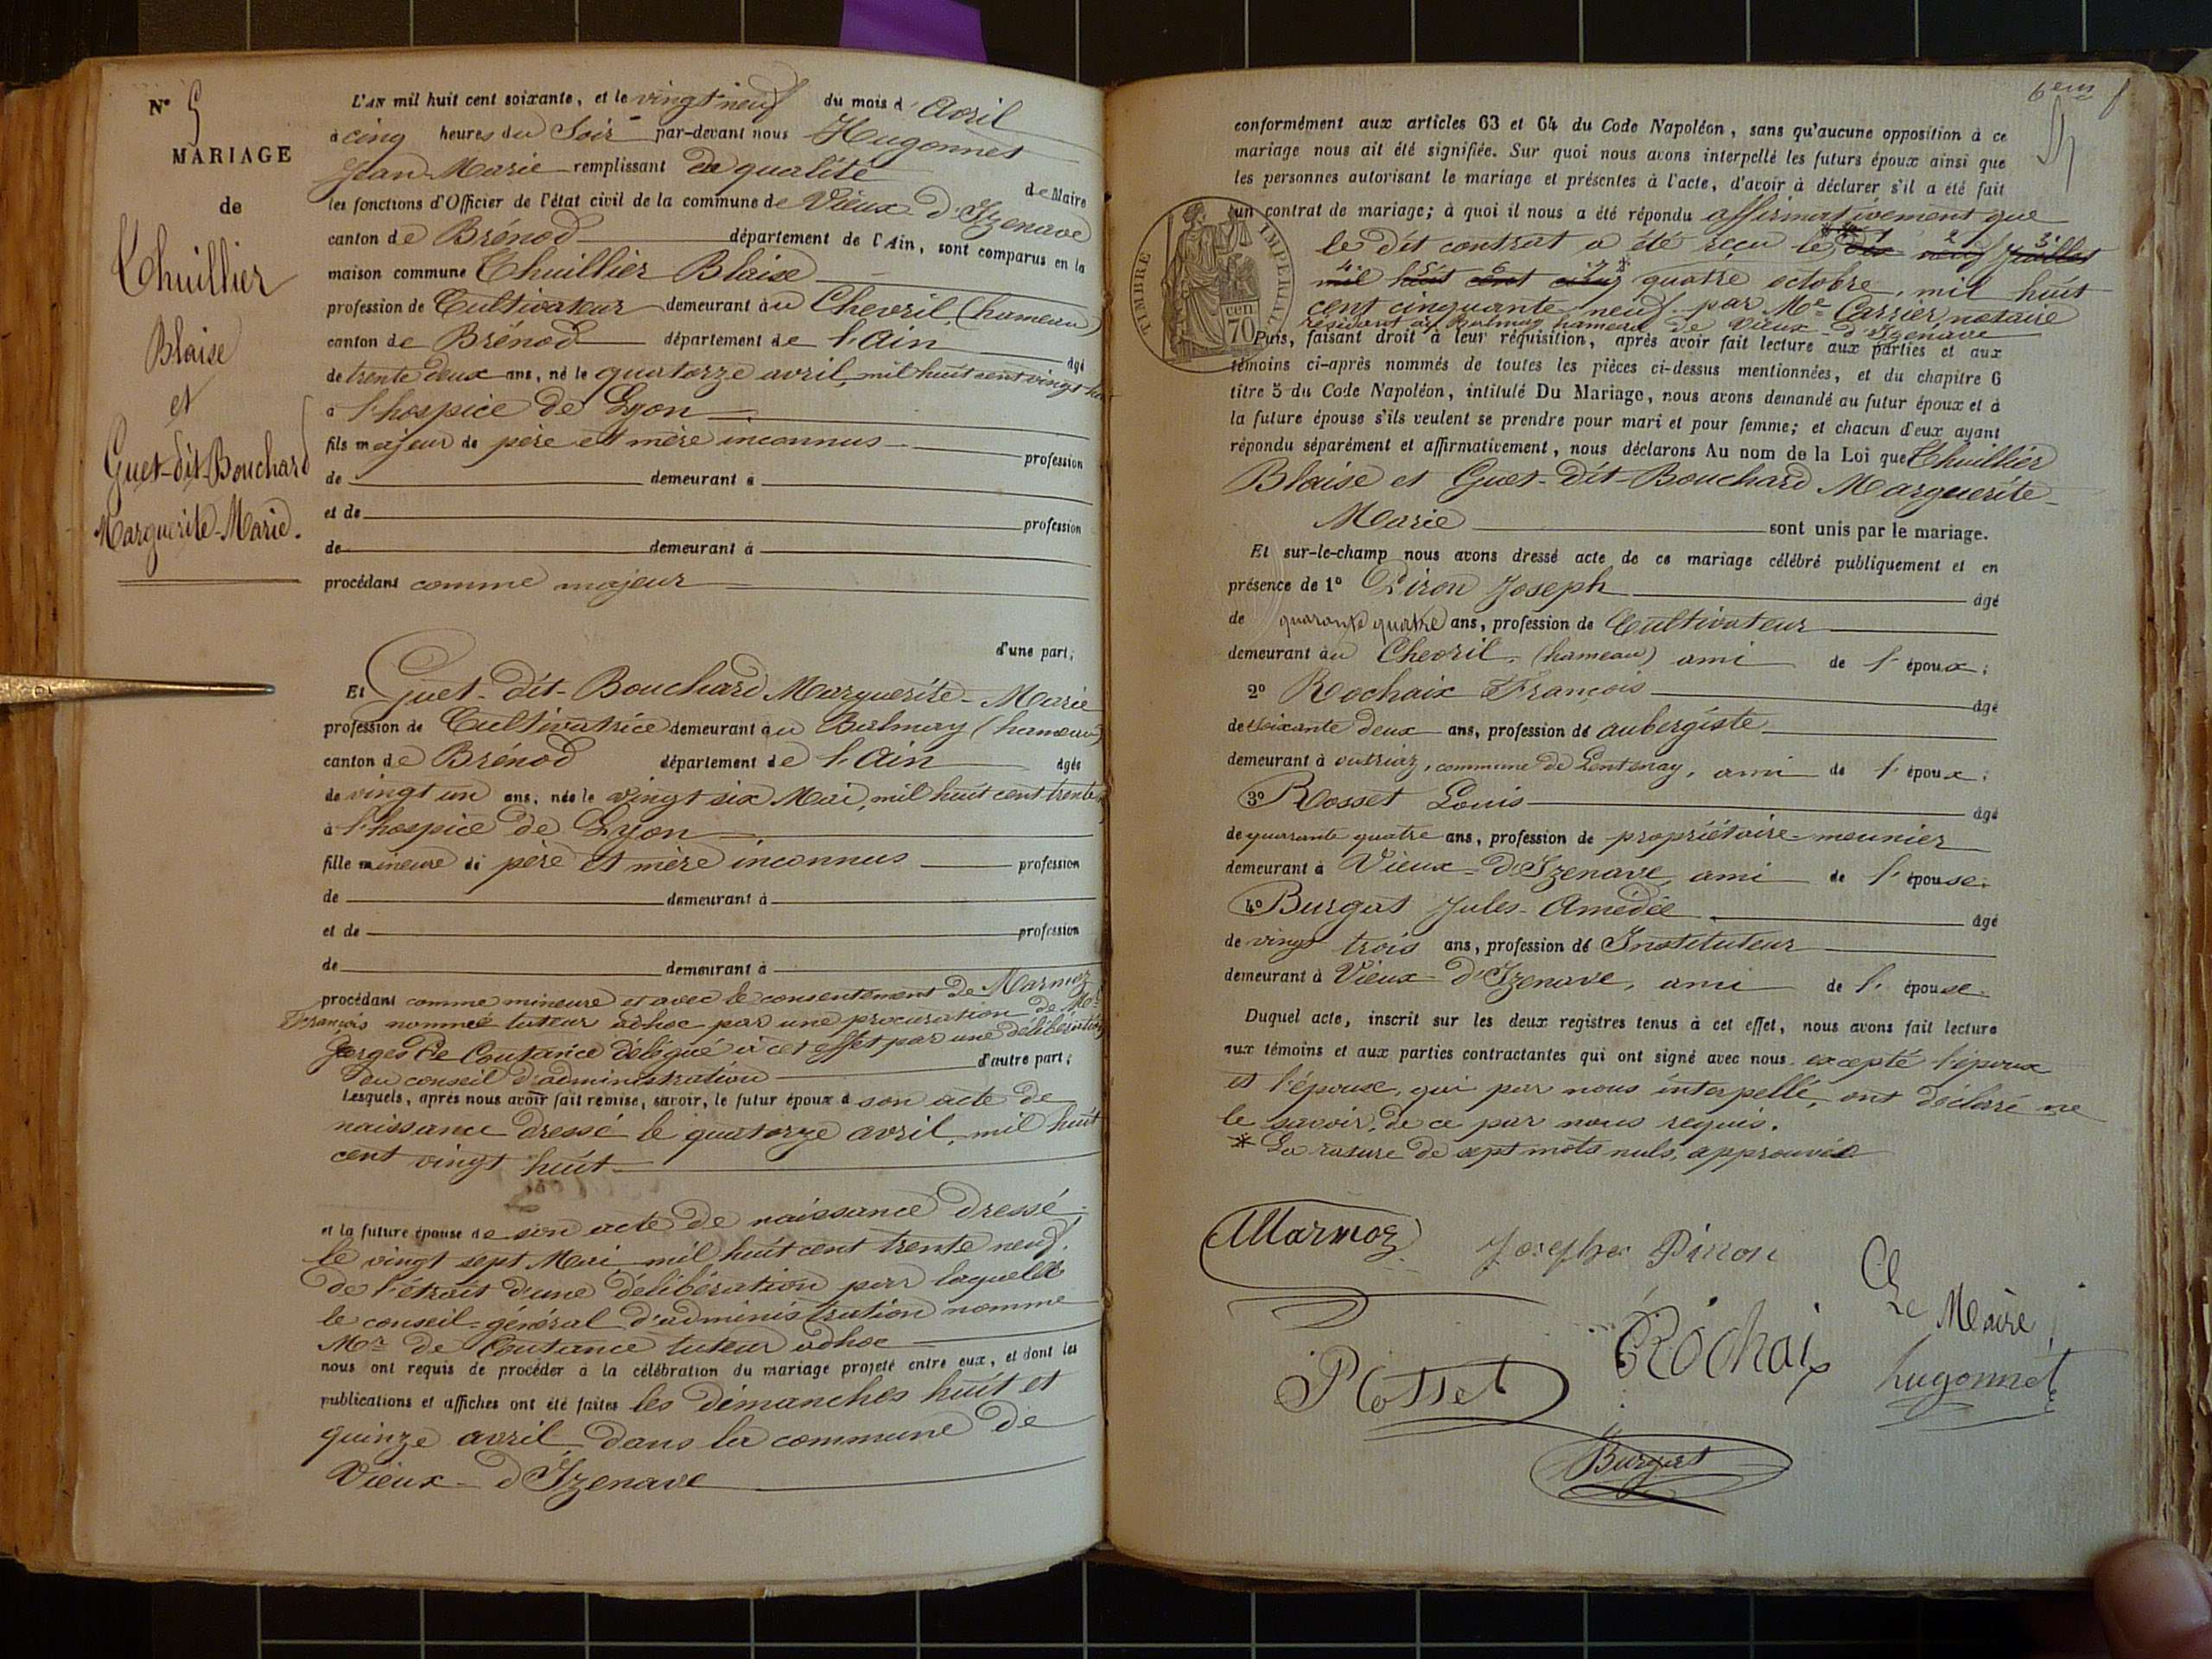 N° 5
MARIAGE
de
Thuillier
Blaise
et
Guet-dit-Bouchard
Marguerite-Marie.
L'AN mil huit cent soixante, et le vingt neuf du mois d'Avril
à cinq heures du Soir par-devant nous Hugonnet
Jean Marie remplissant en qualité de Maire
les fonctions d'Officier de l'état civil de la commune de Vieux-d'Izenave
canton de Brénod département de l'Ain, sont comparus en la
maison commune Thuillier Blaise
profession de Cultivateur demeurant au Chevril (hameau)
canton de Brénod département de l'Ain âgé
de trente deux ans, né le quatorze avril, mil huit cent vingt huit
à l'hospice de Lyon
fils majeur de père et mère inconnus profession
de demeurant à
et de profession
de demeurant à
procédant comme majeur
d'une part;
Et Guet-dit-Bouchard Marguerite-Marie
profession de Cultivatrice demeurant au Balmay (hameau)
canton de Brénod département de l'Ain âgée
de vingt un ans, née le vingt six Mai, mil huit cent trente
à l'hospice de Lyon
fille mineure de père et mère inconnus profession
de demeurant à
et de profession
de demeurant à
procédant comme mineure et avec le consentement de Marmoz
François nommé tuteur adhoc par une procuration de Mr
Georges De Coutance délégué à cet effet par une délibération
du conseil d'administration d'autre part;
Lesquels, après nous avoir fait remise, savoir, le futur époux d son acte de
naissance dressé le quatorze avril, mil huit
cent vingt huit
et la future épouse de son acte de naissance dressé
le vingt sept Mai mil huit cent trente neuf,
de l'étrait d'une délibération par laquelle
le conseil-général d'administration nomme
Mr de Coutance tuteur adhoc
nous ont requis de procéder à la célébration du mariage projeté entre eux, et dont les
publications et affiches ont été faites les dimanches huit et
quinze avril dans la commune de
Vieux-d'Izenave
6em f
conformément aux articles 63 et 64 du Code Napoléon, sans qu'aucune opposition à ce
mariage nous ait été signifiée. Sur quoi nous avons interpellé les futurs époux ainsi que
les personnes autorisant le mariage et présentes à l'acte, d'avoir à déclarer s'il a été fait
un contrat de mariage; à quoi il nous a été répondu affirmativement que
le dit contrat a été reçu le dix neuf juillet
mil huit cent cinq quatre octobre, mil huit
cent cinquante neuf par Me Carrier notaire
résidant au Balmay hameau de Vieux-d'Izenave
TIMBRE IMPERIAL
70 cen
Puis, faisant droit à leur réquisition, après avoir fait lecture aux parties et aux
témoins ci-après nommés de toutes les pièces ci-dessus mentionnées, et du chapitre 6
titre 5 du Code Napoléon, intitulé Du Mariage, nous avons demandé au futur époux et à
la future épouse s'ils veulent se prendre pour mari et pour femme; et chacun d'eux ayant
répondu séparément et affirmativement, nous déclarons Au nom de la Loi que Thuillier
Blaise et Guet-dit-Bouchard Marguerite-
Marie sont unis par le mariage.
Et sur-le-champ nous avons dressé acte de ce mariage célébré publiquement et en
présence de 1° Piron Joseph âgé
de quarante quatre ans, profession de Cultivateur
demeurant au Chevril, (hameau) ami de l'époux;
2° Rochaix François âgé
de soixante deux ans, profession de aubergiste
demeurant à outriaz, commune de Lentenay, ami de l'époux;
3° Rosset Louis âgé
de quarante quatre ans, profession de propriétaire-meunier
demeurant à Vieux-d'Izenave, ami de l'épouse;
4° Burgat Jules-Amédée âgé
de vingt trois ans, profession de Instituteur
demeurant à Vieux-d'Izenave, ami de l'épouse.
Duquel acte, inscrit sur les deux registres tenus à cet effet, nous avons fait lecture
aux témoins et aux parties contractantes qui ont signé avec nous excepté l'époux
et l'épouse, qui par nous interpellé, ont déclaré ne
le savoir, de ce par nous requis.
* La rature de sept mots nuls, approuvée
Marmoz
Josephe Pirron
Le Maire
Rosset
Rochaix
hugonnet
Burgat